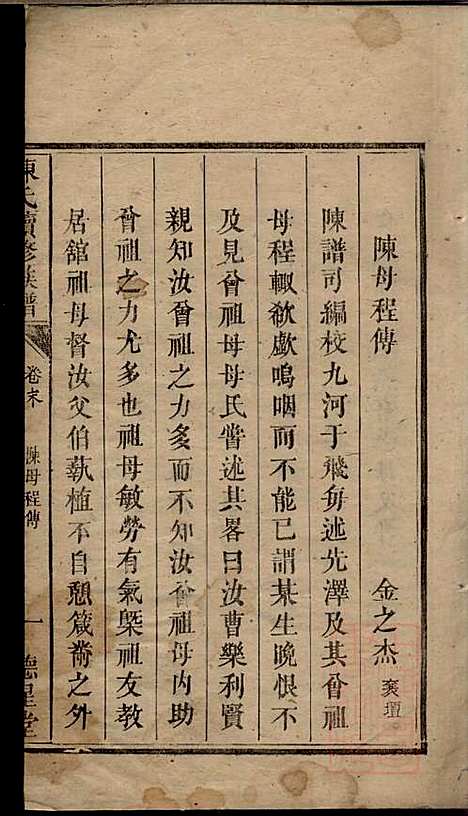 陳母程傳
金之杰 裦壇
陳譜司編校九河于飛毎述先澤及其曾祖
母程輙欷歔嗚咽而不能已謂某生晚恨不
及見曾祖母母氏嘗述其畧曰汝曹樂利賢
親知汝曾祖之力多而不知汝曾祖母内助
曾祖之力尤多也祖母敏勞有氣槩祖友教
居舘祖母督汝父伯執植不自憩箴黹之外
陳氏續修族譜
卷末
陳母程傳
一
德星堂